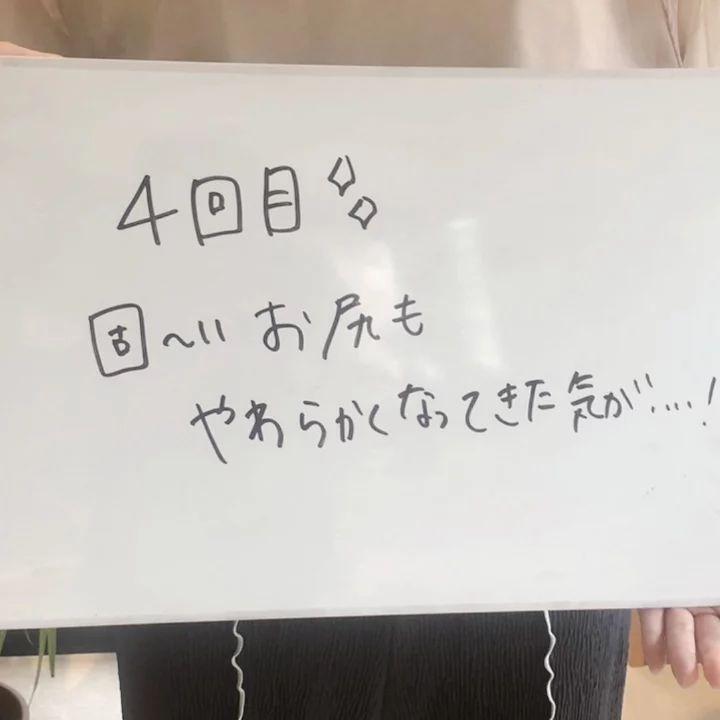 4回目
固〜いお尻も
やわらかくなってきた気が…!